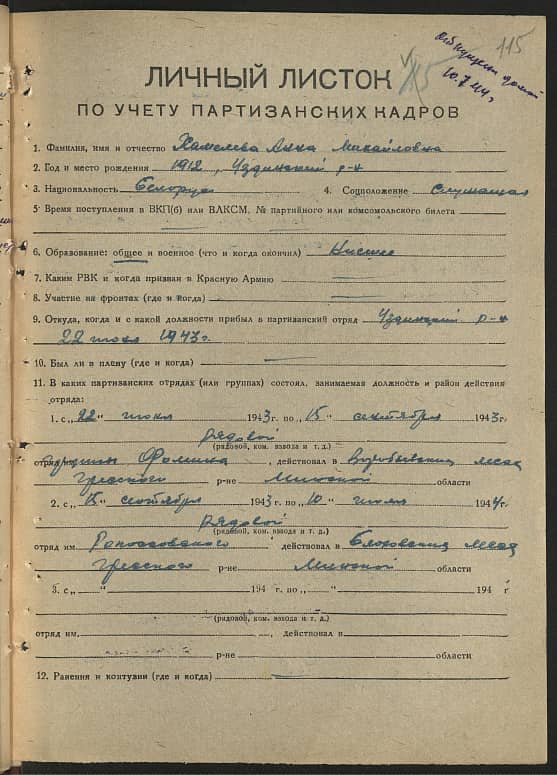 115
10.7.44 г.
ЛИЧНЫЙ ЛИСТОК
115
ПО УЧЕТУ ПАРТИЗАНСКИХ КАДРОВ
1. Фамилия, имя и отчество Анна Михайловна
2. Год и место рождения 1912, Узденский р-н
3. Национальность Белорус 4. Соцположение Служащая
5. Время поступления в ВКП(б) или ВЛКСМ, № партийного или комсомольского билета
6. Образование: общее и военное (что и когда окончил) Низшее
7. Каким РВК и когда призван в Красную Армию
8. Участие на фронтах (где и когда)
9. Откуда, когда и с какой должности прибыл в партизанский отряд Узденский р-н
22 июня 1943 г.
10. Был ли в плену (где и когда)
11. В каких партизанских отрядах (или группах) состоял, занимаемая должность и район действия
отряда:
1. с „22“ июня 1943 г. по „15“ сентября 1943 г.
рядовой
(рядовой, ком. взвода и т. д.)
отряд группы Фомина, действовал в лесах
Гресского р-не Минской области
2. с „15“ сентября 1943 г. по „10“ июля 1944 г.
рядовой
(рядовой, ком. взвода и т. д.)
отряд им. Рокоссовского действовал в лесах
Гресского р-не Минской области
3. с „ “ 194 г. по „ “ 194 г
(рядовой, ком. взвода и т. д.)
отряд им. , действовал в
р-не области
12. Ранения и контузии (где и когда)